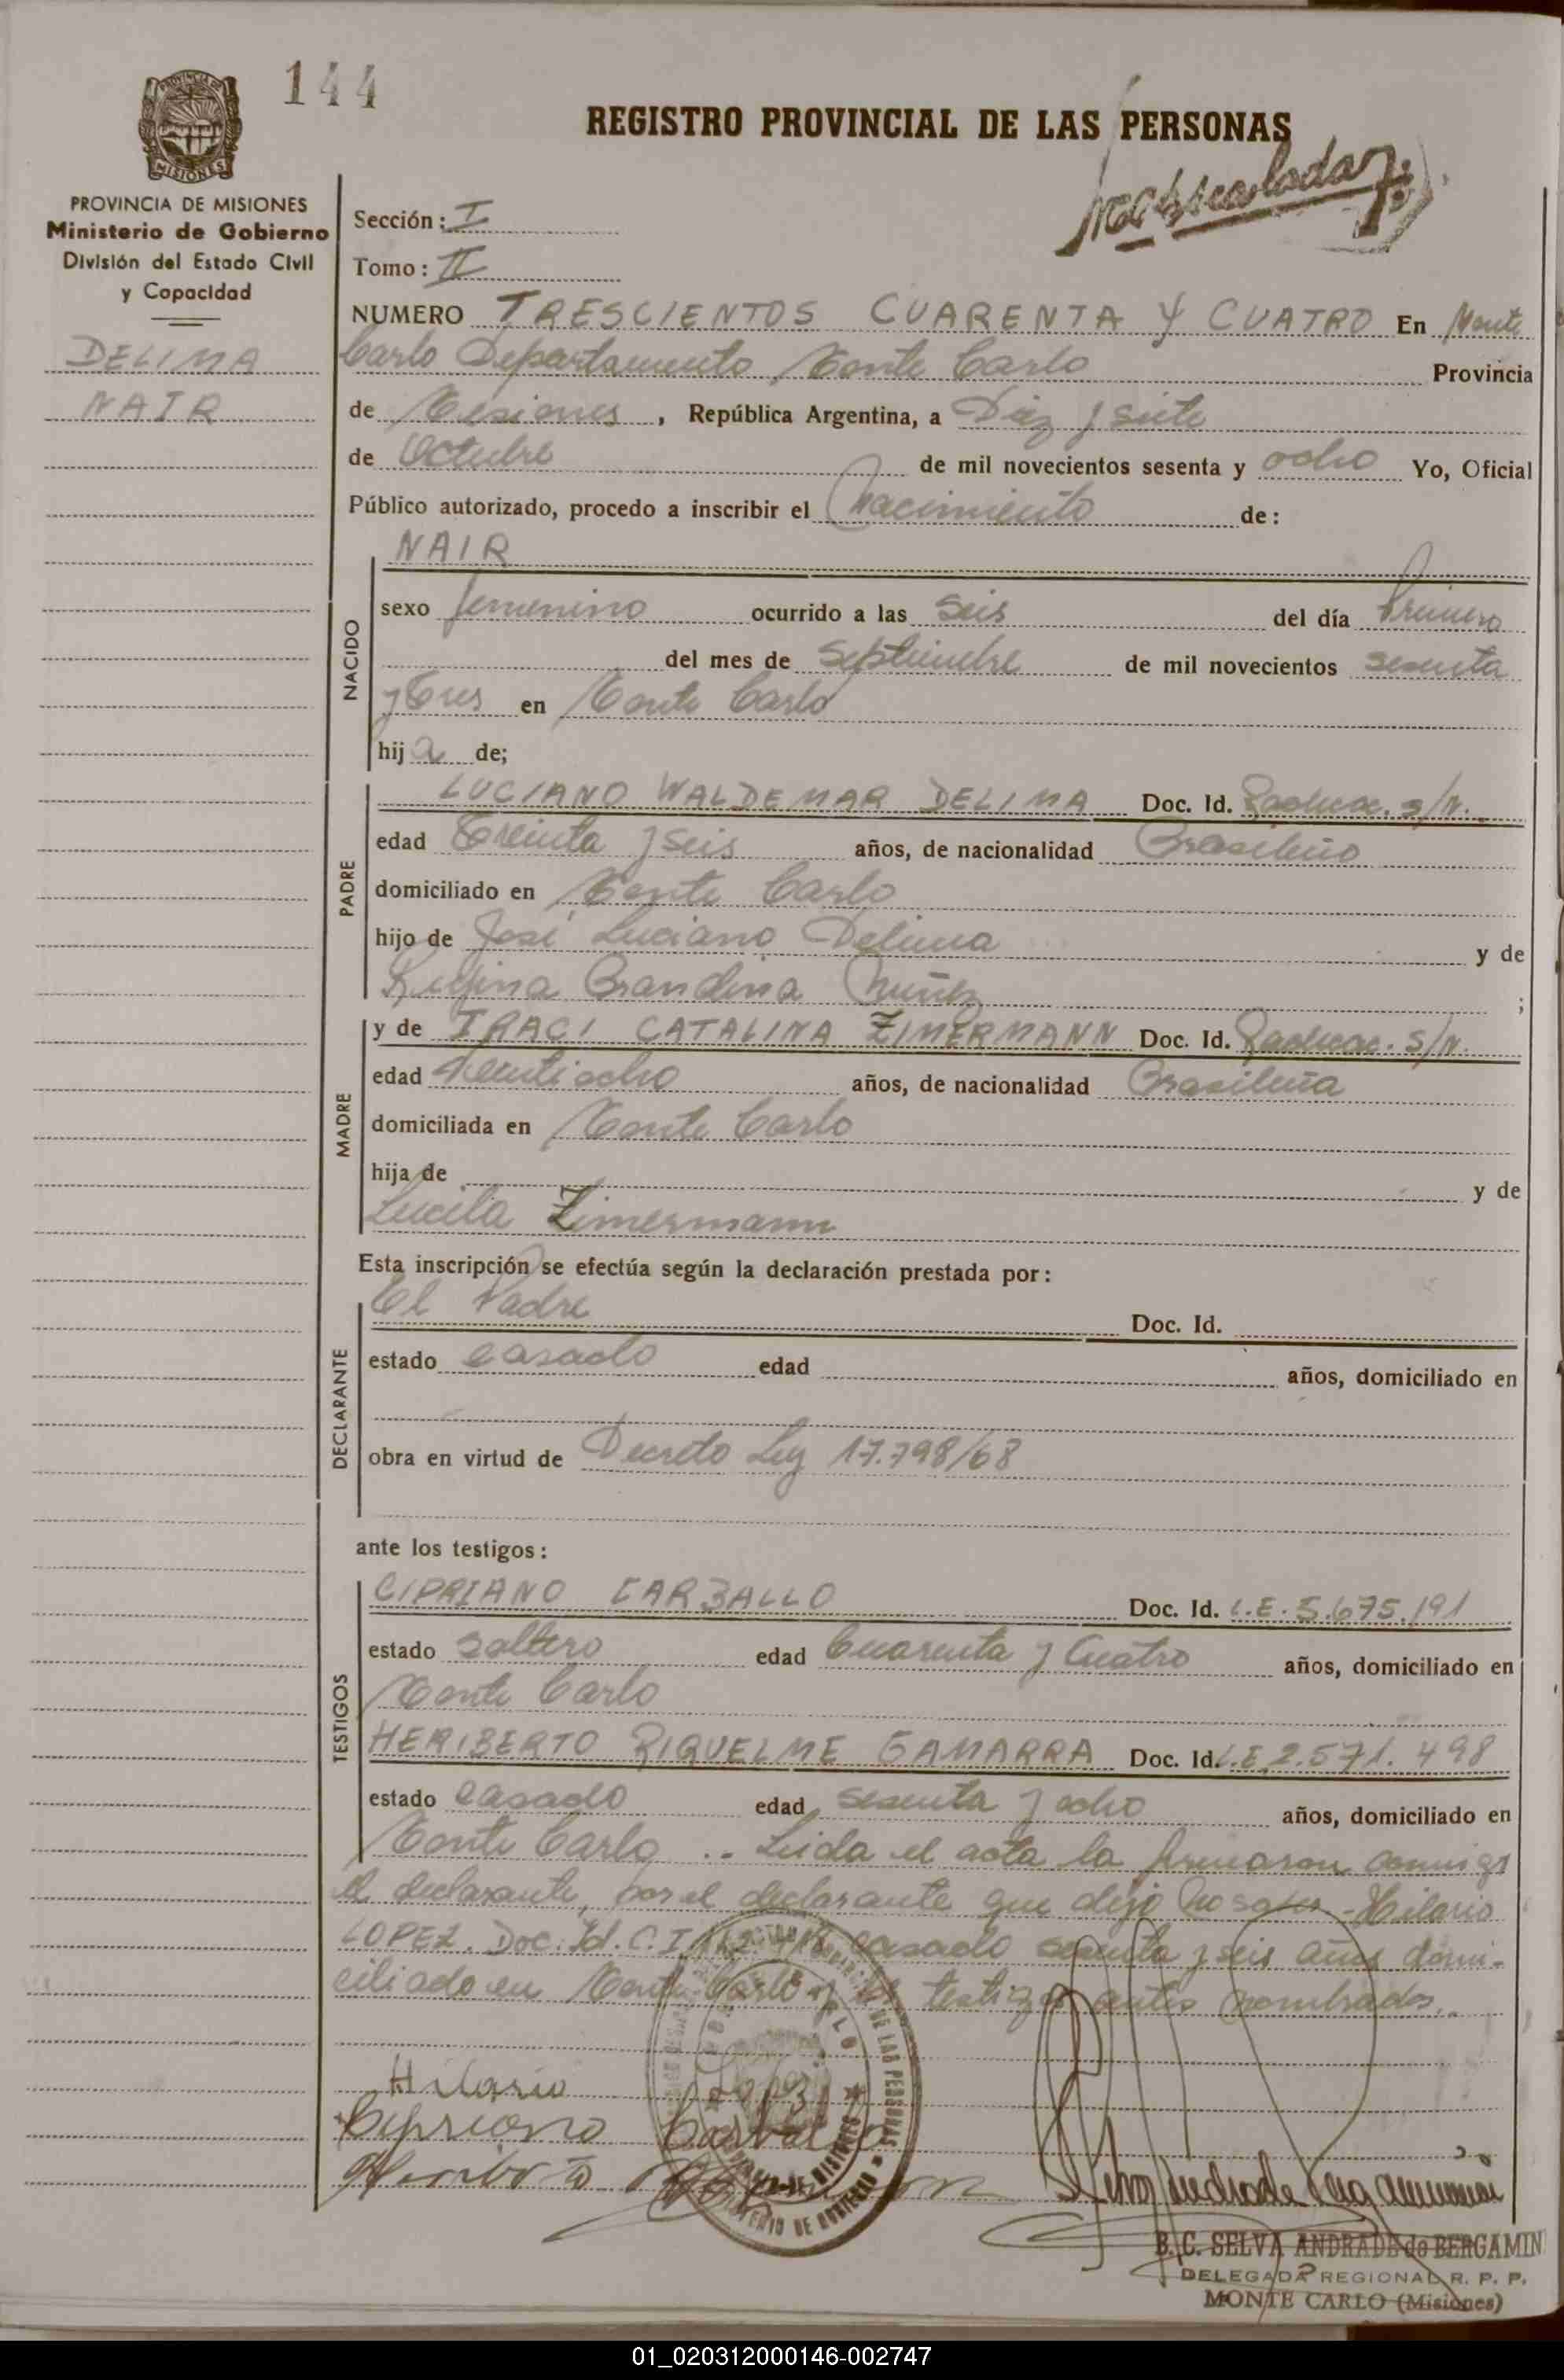 144
REGISTRO PROVINCIAL DE LAS PERSONAS
PROVINCIA DE
MISIONES
PROVINCIA DE MISIONES
Ministerio de Gobierno
División del Estado Civil
y Capacidad
DELIMA
NAIR
Sección: I
Tomo: II
NUMERO TRESCIENTOS CUARENTA Y CUATRO En Monte
Carlo Departamento Monte Carlo Provincia
de Misiones, República Argentina, a Diez y siete
de Octubre de mil novecientos sesenta y ocho Yo, Oficial
Público autorizado, procedo a inscribir el Nacimiento de:
NACIDO
NAIR
sexo femenino ocurrido a las seis del día Primero
del mes de Septiembre de mil novecientos sesenta
y tres en Monte Carlo
hija de;
PADRE
LUCIANO WALDEMAR DELIMA Doc. Id. s/n.
edad treinta y seis años, de nacionalidad Brasileño
domiciliado en Monte Carlo
hijo de José Luciano Delima y de
Regina Brandina Nuñez ;
MADRE
y de IRACI CATALINA ZIMERMANN Doc. Id. S/n.
edad Veintiocho años, de nacionalidad Brasileña
domiciliada en Monte Carlo
hija de y de
Lucila Zimermann
Esta inscripción se efectúa según la declaración prestada por:
DECLARANTE
El Padre Doc. Id.
estado casado edad años, domiciliado en
obra en virtud de Decreto Ley 17.798/68
ante los testigos:
TESTIGOS
CIPRIANO CARBALLO Doc. Id. L.E. 5.675.191
estado soltero edad Cuarenta y Cuatro años, domiciliado en
Monte Carlo
HERIBERTO RIQUELME GAMARRA Doc. Id. L.E. 2.571.498
estado casado edad sesenta y ocho años, domiciliado en
Monte Carlo .. Leida el acta la firmaron conmigo
el declarante, por el declarante que dijo no saber - Hilario
LOPEZ. Doc. Id. C.I. casado sesenta y seis años domi-
ciliado en Monte Carlo y los testigos antes nombrados..
Hilario Lopez
Cipriano Carballo
Heriberto
DE LAS PERSONAS
MISIONES
B. C. SELVA ANDRADE de BERGAMIN
DELEGADA REGIONAL R. P. P.
MONTE CARLO (Misiones)
01_020312000146-002747